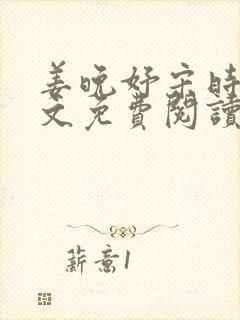 姜晚妤宋時
文免費閱讀
薪意1